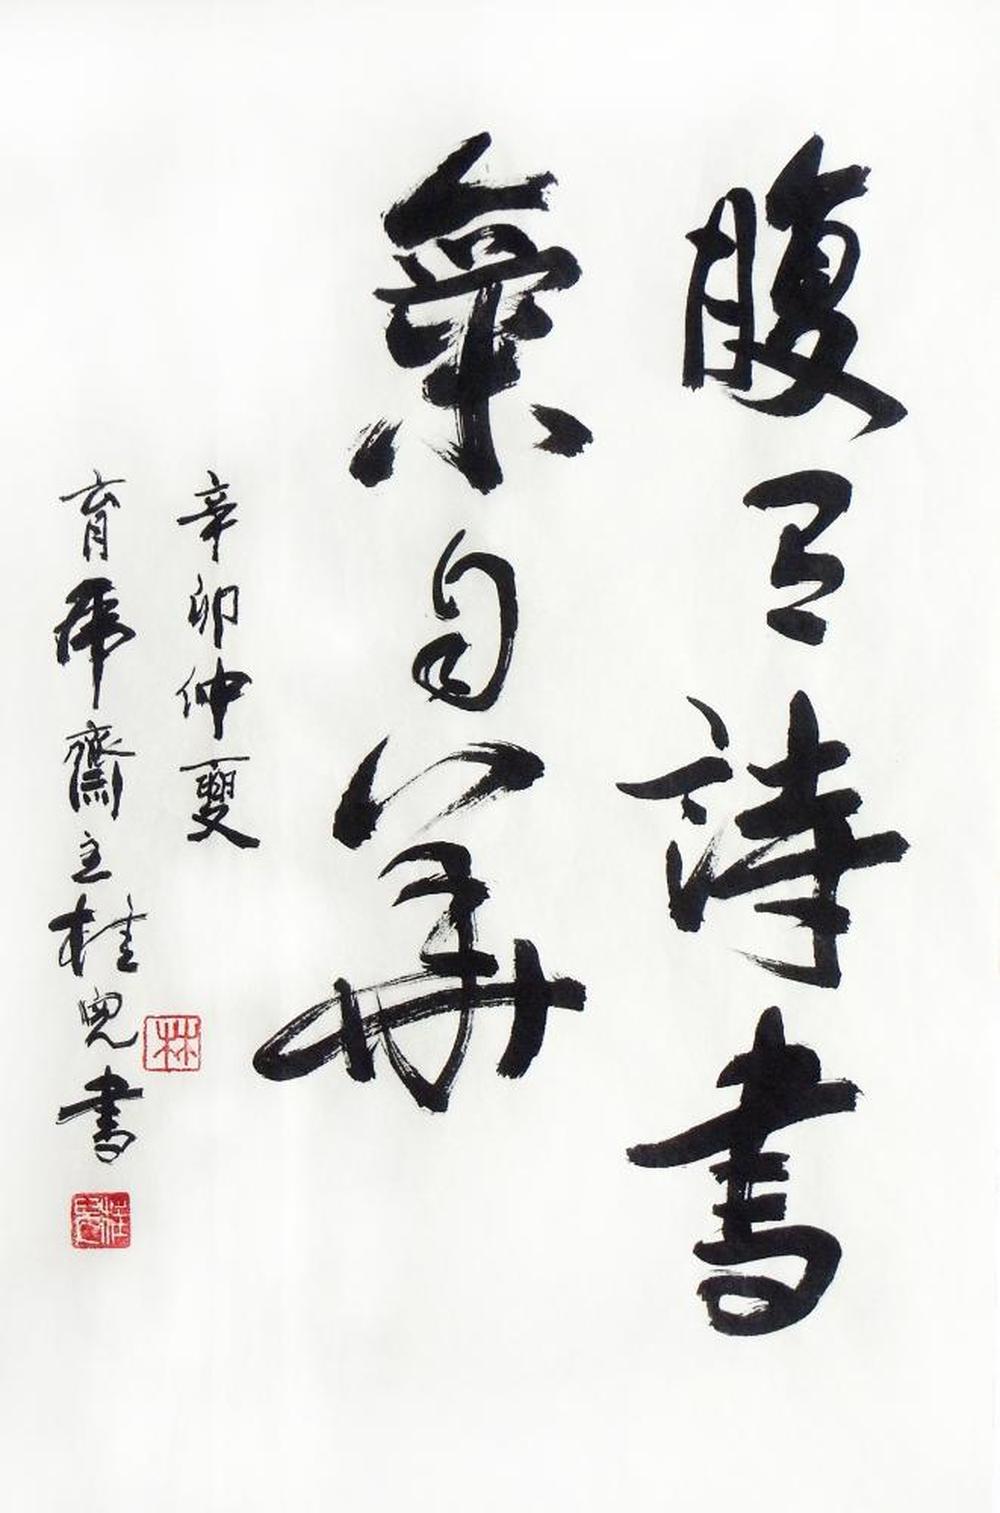 腹有詩書
氣自華
辛卯仲夏
育虎齋主桂兒書
林